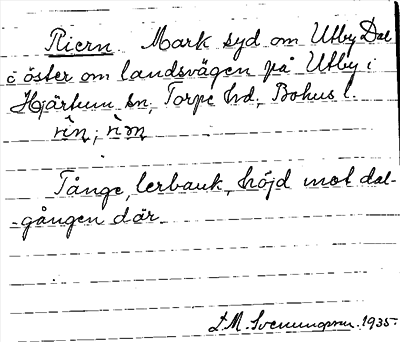 Riern Mark syd om Utby Dal
o öster om landsvägen på Utby i
Hjärtum sn, Torpe hd, Bohus l.
rin, rin
Tånge, lerbank, höjd mot dal-
-gången där
D.M. Svenungsson. 1935.